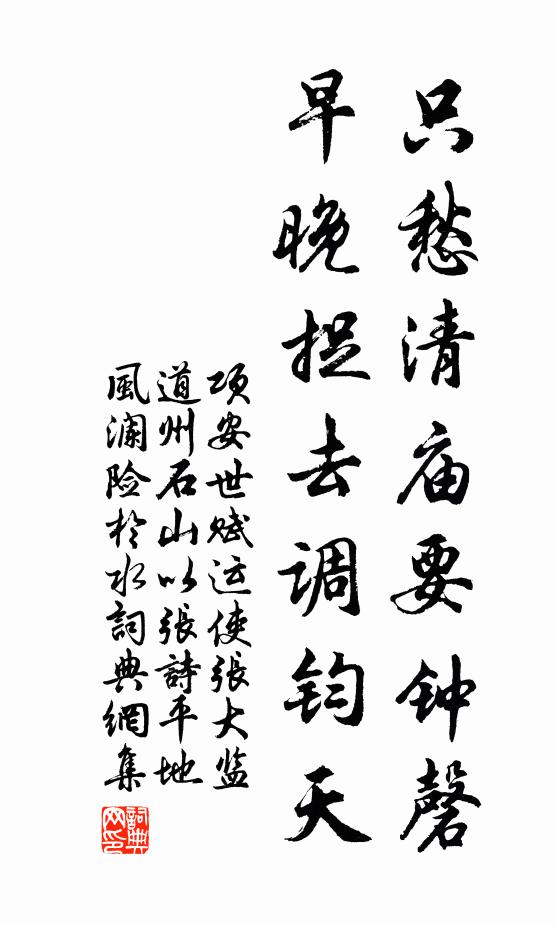 只愁清庙要钟磬
早晚捉去调钧天
项安世赋运使张大监
道州石山以張詩平地
風澜险於水詞典網集
詞典网印